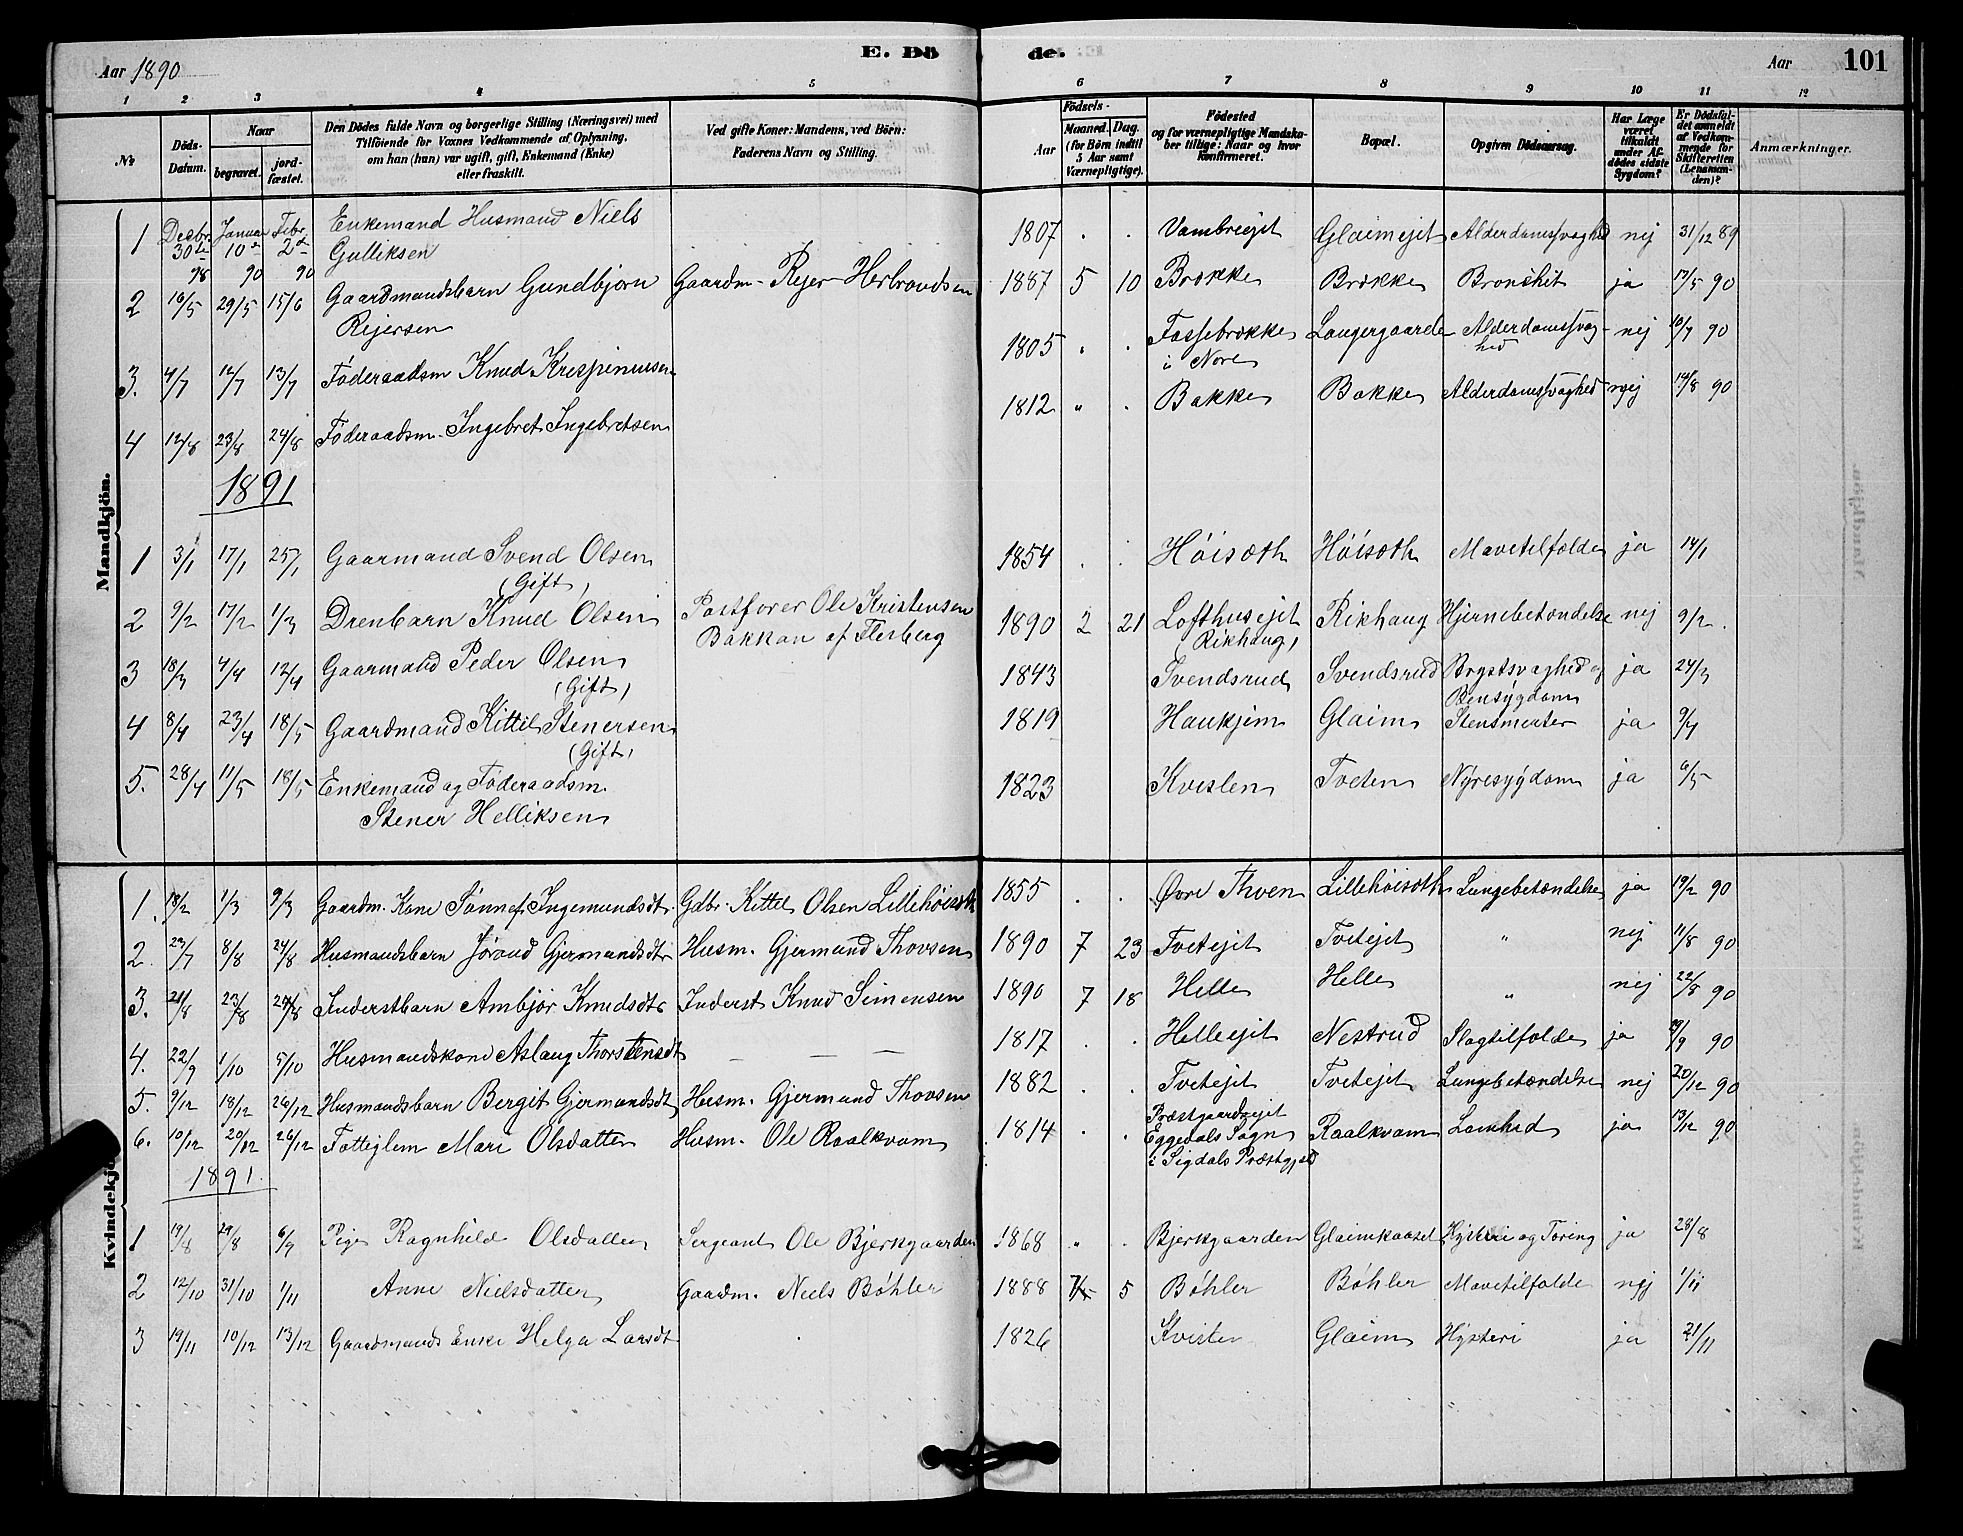 Aar 1890
E. Dö
de.
Aar
101
1 2 3 4 5 6 7 8 9 10 11 12
No
Döds-Datum.
Naar
begravet.
jord-fæstet.
Den Dödes fulde Navn og borgerlige Stilling (Næringsvei) med
Tilföiende for Voxnes Vedkommende af Oplysning,
om han (hun) var ugift, gift, Enkemand (Enke)
eller fraskilt.
Ved gifte Koner: Mandens, ved Börn:
Faderens Navn og Stilling.
Födsels-
Aar
Maaned. Dag.
(for Börn indtil
5 Aar samt
Værnepligtige).
Födested
og for værnepligtige Mandska-
ber tillige: Naar og hvor
konfirmeret.
Bopæl.
Opgiven Dödsaarsag.
Har Læge
været
tilkaldt
under Af-
dödes sidste
Sygdom?
Er Dödsfal-
det anmeldt
af Vedkom-
mende for
Skifteretten
(Lensman-
den)?
Anmærkninger.
Mandkjön.
1 Decbr 30te Januar 10de 90 Febr. 2den 90 Enkemand Husmand Niels
Gulliksen
1807 . . Vambreejet Glaimejet Alderdomssvaghed nej 31/12 89
2 16/5 29/5 15/6 Gaardmandsbarn Gundbjørn
Reiersen
Gaardm. Rejer Herbrandsen 1887 5 10 Brøkke Brøkke Bronchit ja 17/5 90
3. 4/7 12/7 13/7 Føderaadsm Knud Krespinussen
1805 " . Fossebrøkke
i Nore
Langergaarde Alderdomssvag-
hed
nej 10/7 90
4 12/8 23/8 24/8 Føderaadsm. Ingebret Ingebretsen
1812 " . Bakke Bakke Alderdomssvaghed nej 14/8 90
1891
1 3/1 17/1 25/1 Gaarmand Svend Olsen
(Gift)
1854 . . Høisæth Høisæth Mavetilfælde ja 14/1
2 9/2 17/2 1/3 Drenbarn Knud Olsen
Postfører Ole Kristensen
Bakkan af Flesberg
1890 2 21 Lofthusejet
(Rikhaug)
Rikhaug Hjernebetændelse nej 9/2.
3 18/3 4/4 12/4 Gaarmand Peder Olsen
(Gift)
1843 Svendsrud Svendsrud Brystsvaghed og
Bensygdom
ja 24/3
4 8/4 23/4 18/5 Gaardmand Kittil Stenersen
(Gift)
1819 Haukjem Glaim Stensmerter ja 9/4
5. 28/4 11/5 18/5 Enkemand og Føderaadsm.
Stener Helliksen
1823 Kvislen Tveten Nyresygdom ja 6/5
Kvindekjö
1. 18/2 1/3 9/3 Gaardm. Kone Sønnef Ingemundsdt. Gdbr. Kittel Olsen Lillehøisæth 1855 . . Øvre Thoen Lillehøisæth Lungebetændelse ja 19/2 90
2. 23/7 8/8 24/8 Husmandsbarn Jørand Gjermundsdt Husm. Gjermund Thovsen 1890 7 23 Tvetejet Tvetejet " nej 11/8 90
3. 21/8 23/8 24/8 Inderstbarn Ambjør Knudsdt Inderst Knud Simensen 1890 7 18 Helle Helle " nej 22/8 90
4. 22/9 1/10 5/10 Husmandskone Aslaug Thorstensdt — — — 1817 . . Helleejet Nestrud Slagtilfælde ja /9 90
5. 9/12 18/12 26/12 Husmandsbarn Bergit Gjermundsdt Husm. Gjermund Thovsen 1882 . . Tvetejet Tvetejet Lungebetændelse nej 20/12 90
6. 10/12 20/12 26/12 Fattiglem Mari Olsdatter Husm. Ole Raalkvam 1814 . . Præstgaardsejet
Eggedals Sogn
i Sigdals Præstgjeld
Raalkvam Lamhed ja 13/12 90
1891.
1 19/8 29/8 6/9 Pige Ragnhild Olsdatter Sergeant Ole Bjerkgaarden 1868 " . Bjerkgaarden Glaimkaaset Hysteri og Tæring ja 28/8
2 12/10 31/10 1/11 Anne Nielsdatter Gaardm. Niels Bøhler 1888 5 Bøhler Bøhler Mavetilfælde nej 1/11
3 19/11 10/12 13/12 Gaardmands Enke Helga Larsdt . 1826 Kvisten Glaim Hysteri ja 21/11